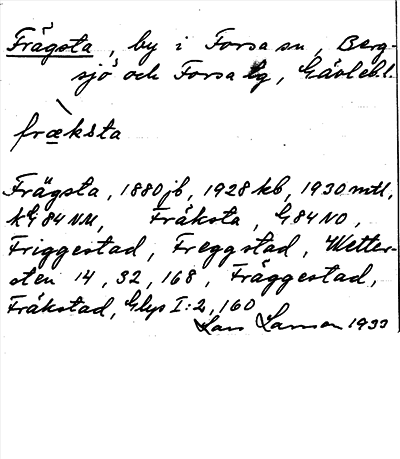 Frägsta, by i Forsa sn, Berg-
sjö och Forsa tg, Gävlebl.
fræksta
Frägsta, 1880 jb, 1928 kb, 1930 mtl,
KG 84 NM, Fräksta, G 84 NO,
Friggestad, Freggstad, Wetter-
sten 14, 32, 168, Fräggestad,
Fräkstad, Glyp I:2, 160
Lars Larsson 1933